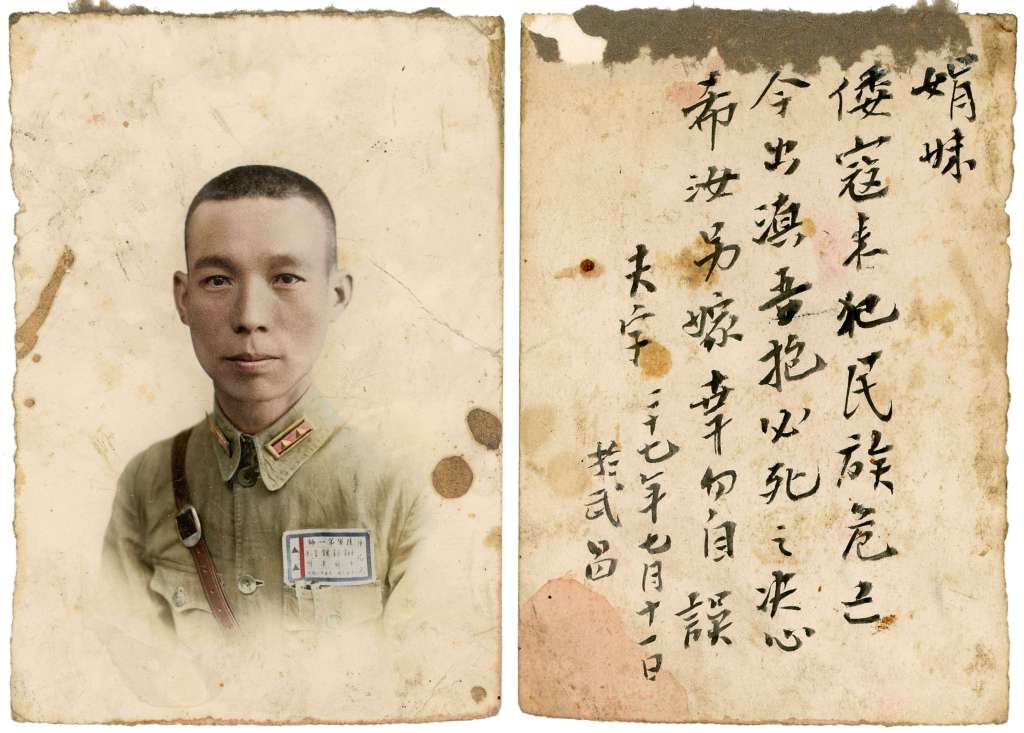 娟妹
倭寇来犯民族危亡
今出滇吾抱必死之决心
希汝另嫁幸勿自誤
夫宇
二十七年七月十一日
於武昌